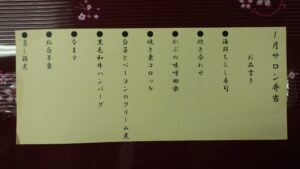 1月サロン弁当
お品書き
●海鮮ちらし寿司
●焚き合わせ
●かぶの味噌田楽
●焼き栗コロッケ
●白菜とベーコンのクリーム煮
●黒毛和牛ハンバーグ
●なます
●紅白羊羹
●蒸し雑煮